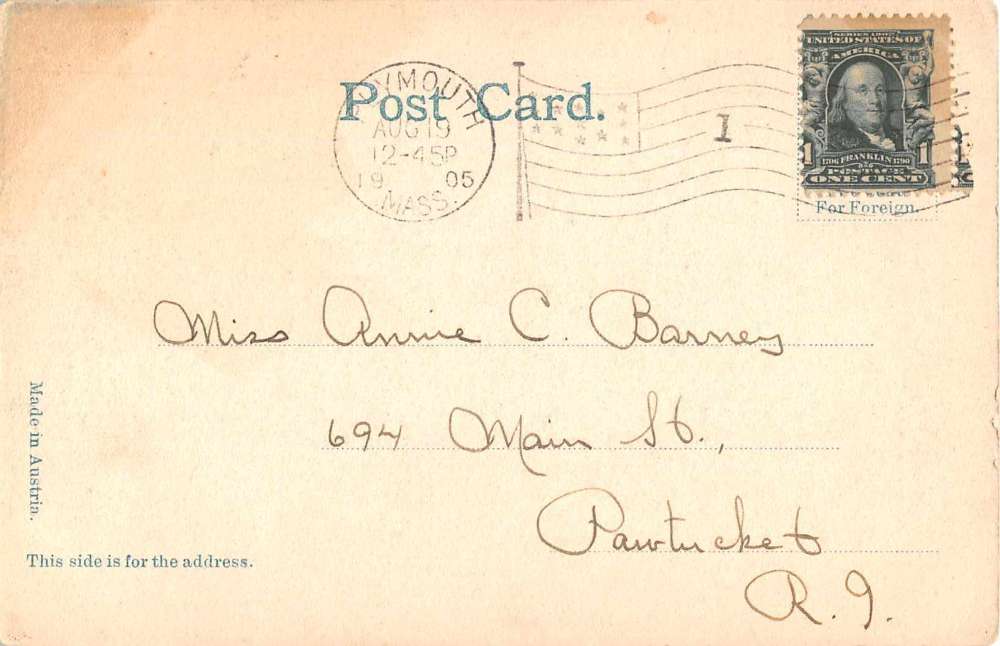 Post Card.
PLYMOUTH
AUG 19
12-45P
19 05
MASS.
1
SERIES 1902
UNITED STATES OF
AMERICA
1 1706 FRANKLIN 1790 1
POSTAGE
ONE CENT
For Foreign.
Miss Annie C. Barney
694 Main St.,
Pawtucket
R. I.
Made in Austria.
This side is for the address.